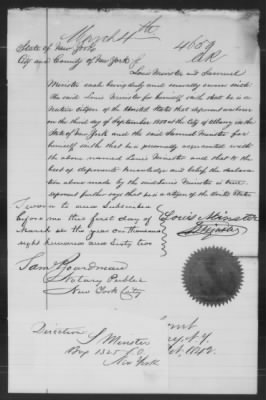 March 4th
4659
State of New York
City and County of New York
Louis Minster and Samuel
Minster each being duly and severally sworn saith
the said Louis Minster for himself saith that he is a
Native citizen of the United States that deponent was born
on the third day of September 18 at the City of Albany in the
State of New York and the said Samuel Minster for
himself saith that he is personally acquainted with
the above named Louis Minster and that to the
best of deponents knowledge and belief the declara
tion above made by the said Louis Minster is true
deponent further says that he is a citizen of the United States
Sworn to and Subscribed
before me this first day of
March in the year one thousand
eight hundred and sixty two
Louis Minster
S Minster
Sam Boardman
Notary Public
New York City
Direction S Minster
Box 1325 P.O.
New York
N.Y.
1842.